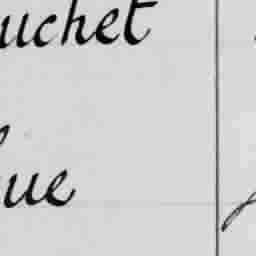 uchet
ue